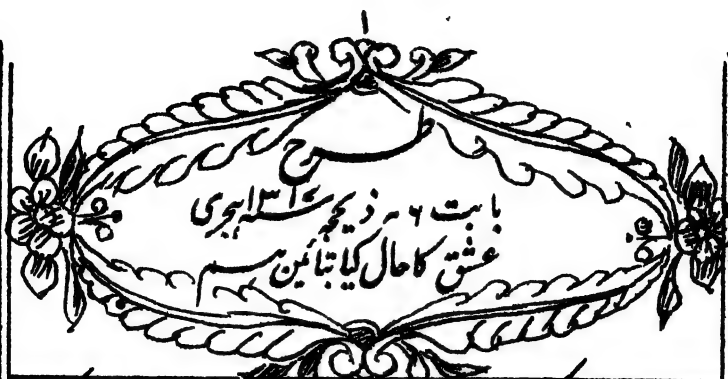 ۱
طرح
بابت ۶ ۔ ذیحجہ ہجری
عشق کا حال کیا بتائین ہم